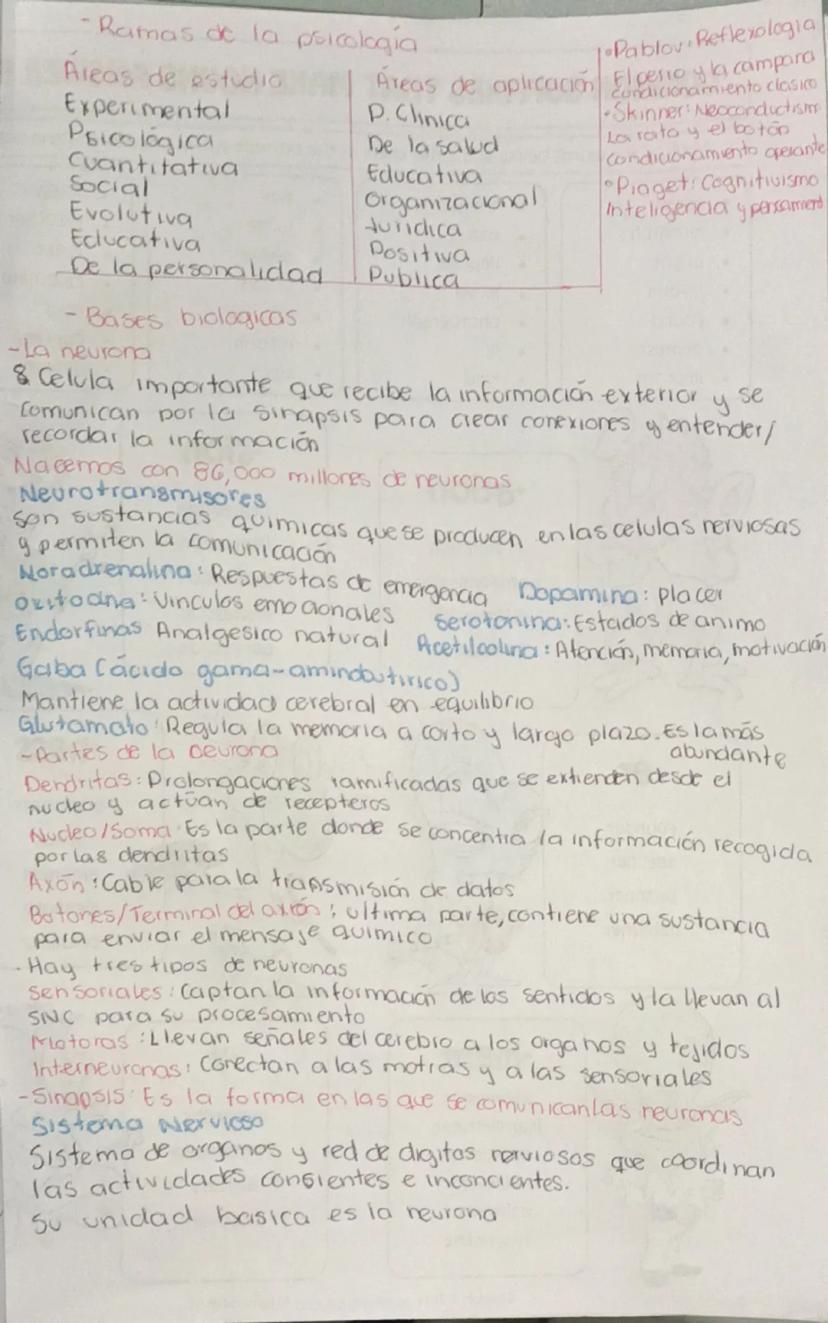 - Ramas de la psicología
Áreas de estudio
Experimental
Psicológica
Cuantitativa
Social
Evolutiva
Educativa
De la personalidad
Áreas de aplicación
P. Clinica
De la salud
Educativa
Organizacional
Juridica
Positiva
Publica
• Pablov: Reflexologia
El perro y la campana
condicionamiento clasico
• Skinner: Neoconductismo
La rata y el botón
condicionamiento operante
• Piaget: Cognitivismo
Inteligencia y pensament
- Bases biologicas
- La neurona
Celula importante que recibe la información exterior y se
comunican por la sinapsis para crear conexiones y entender/
recordar la información
Nacemos con 86,000 millones de neuronas
Neurotransmisores
son sustancias quimicas que se producen en las celulas nerviosas
y permiten la comunicación
Noradrenalina: Respuestas de emergencia Dopamina: placer
Oxitocina: Vinculos emocionales Serotonina: Estados de animo
Endorfinas Analgesico natural Acetilcolina: Atención, memoria, motivación
Gaba (ácido gama-aminobutirico)
Mantiene la actividad cerebral en equilibrio
Glutamato: Regula la memoria a corto y largo plazo. Es la más
abundante
- Partes de la neurona
Dendritas: Prolongaciones ramificadas que se extienden desde el
nucleo y actúan de recepteros
Nucleo/Soma: Es la parte donde se concentra la información recogida
por las dendritas
Axón: Cable para la transmisión de datos
Botones/Terminal del axón: ultima parte, contiene una sustancia
para enviar el mensaje quimico
. Hay tres tipos de neuronas
Sensoriales: Captan la información de los sentidos y la llevan al
SNC para su procesamiento
Motoras: Llevan señales del cerebro a los organos y tejidos
Interneuronas: Conectan a las motras y a las sensoriales
- Sinapsis: Es la forma en las que se comunican las neuronas
Sistema Nervioso
Sistema de organos y red de digitos nerviosos que coordinan
las actividades consientes e inconcientes.
Su unidad basica es la neurona